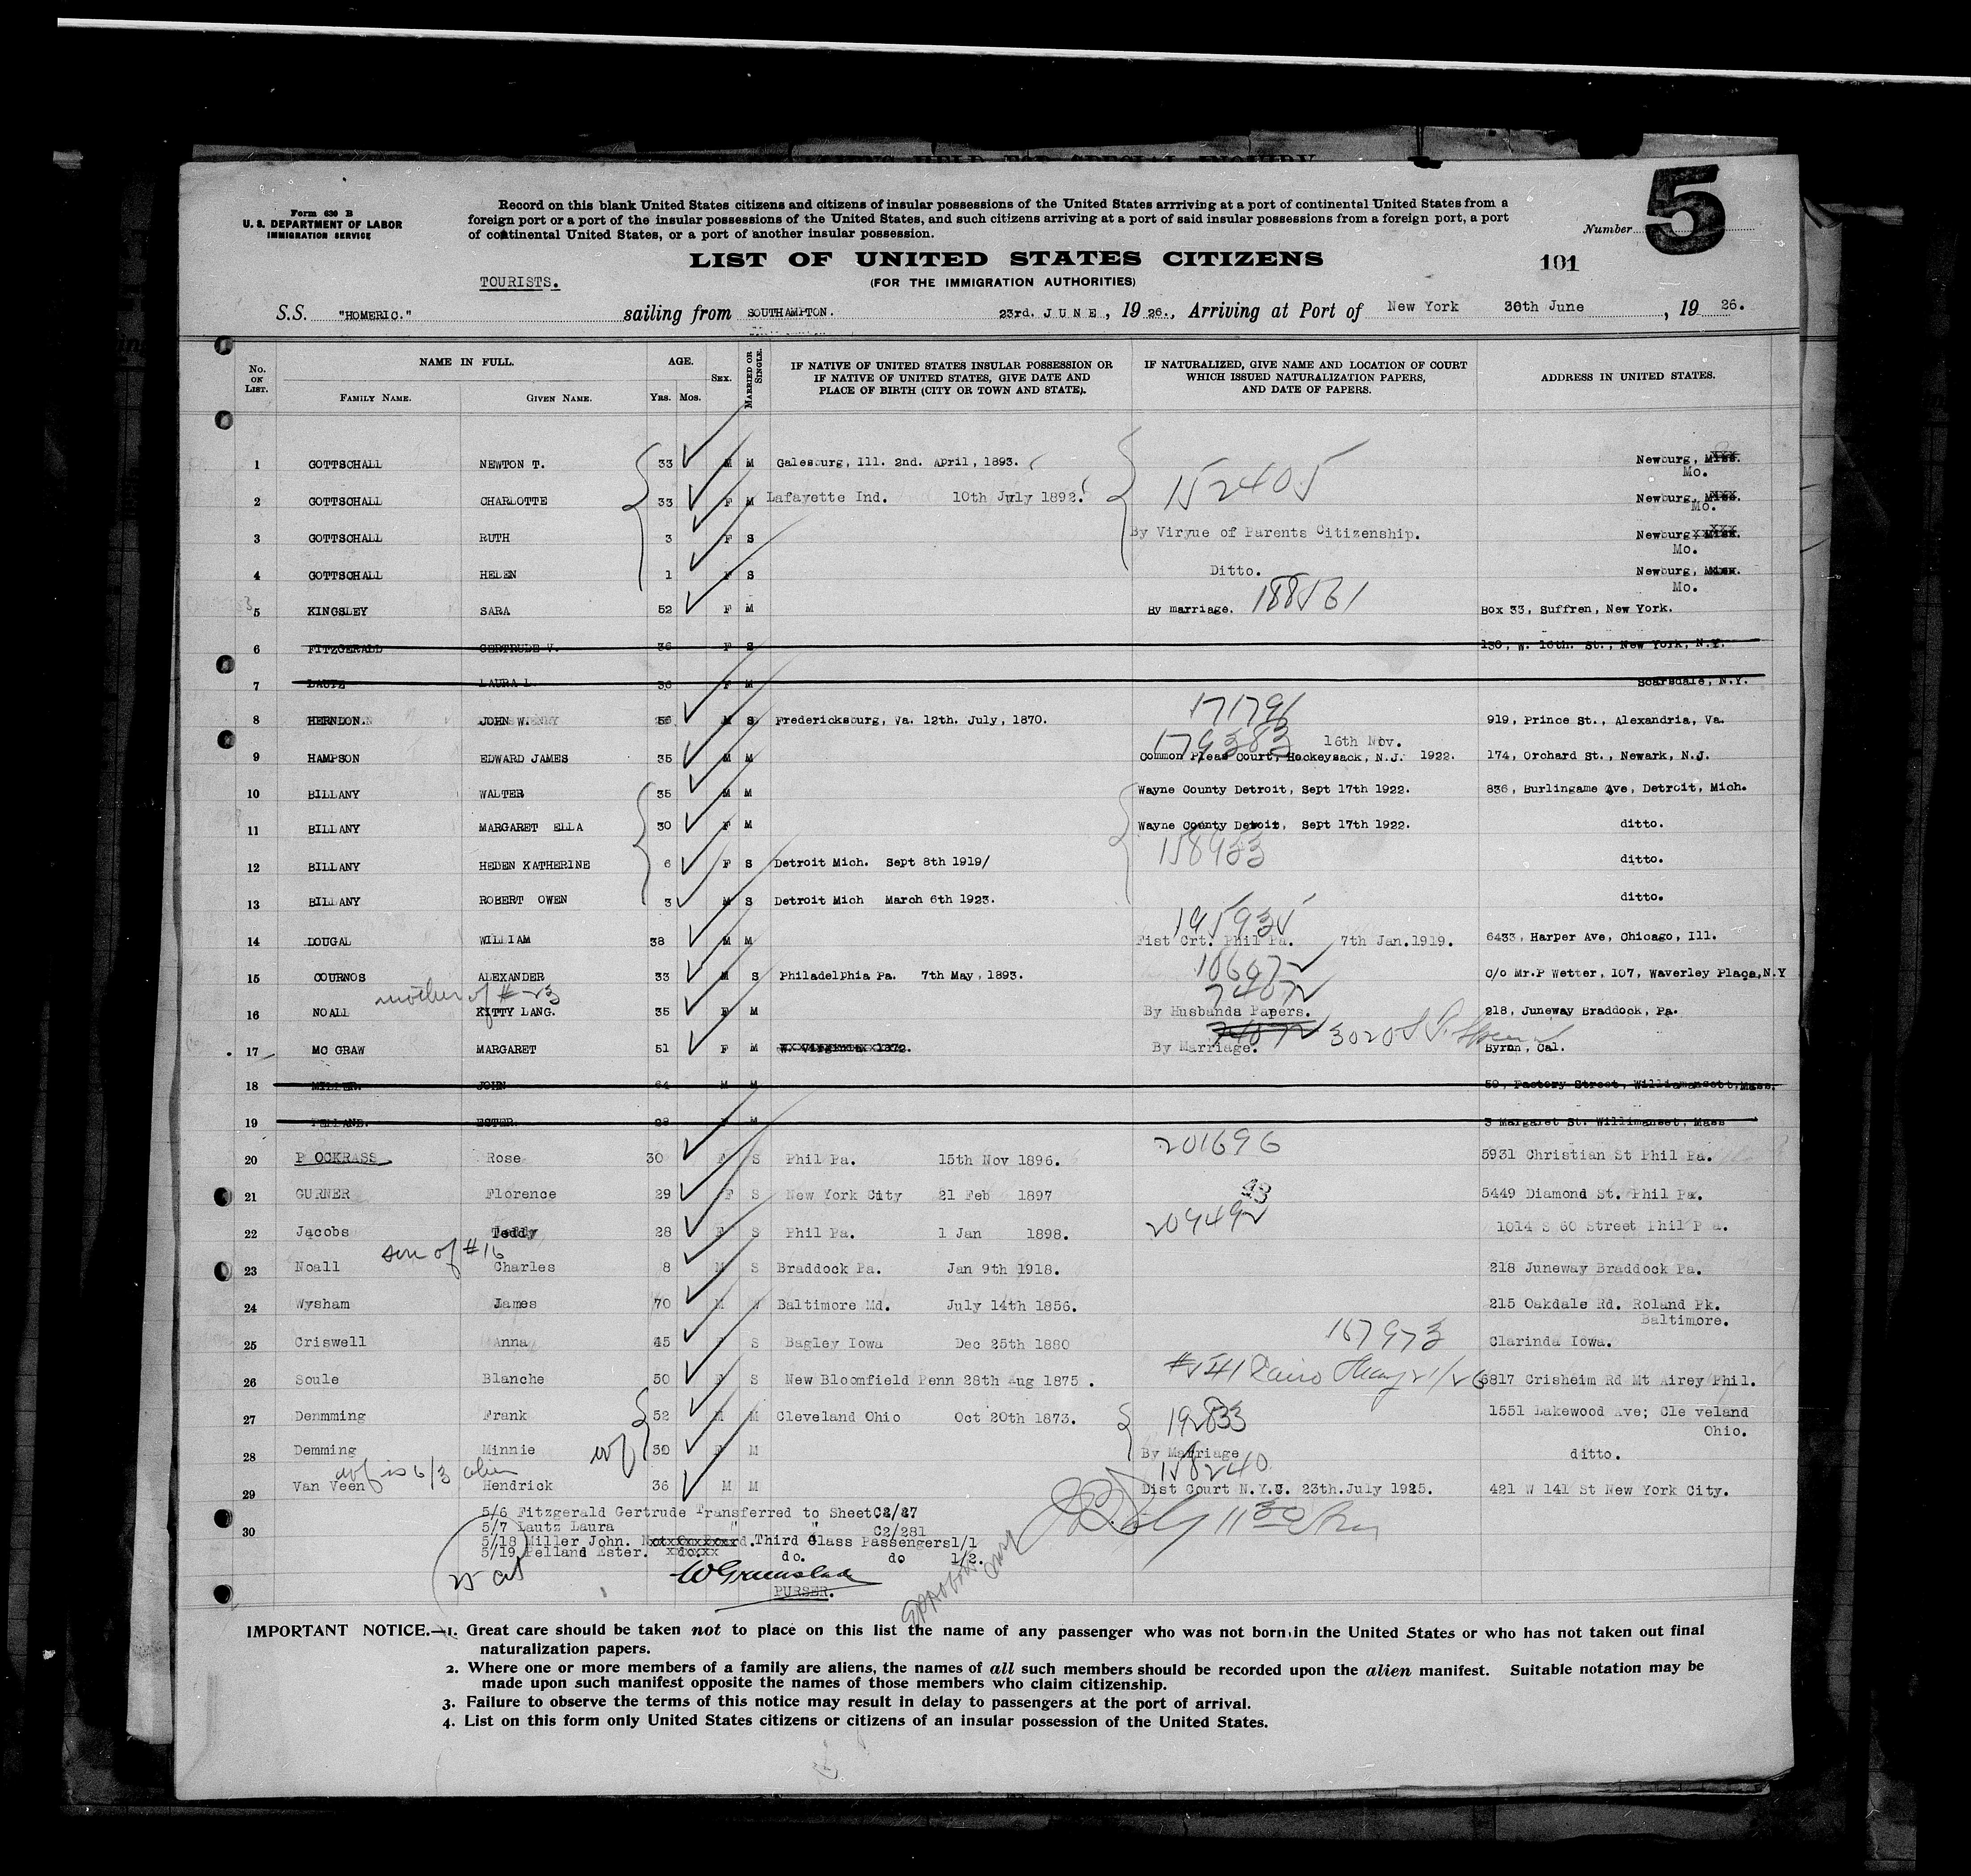 Form 630 B
U. S. DEPARTMENT OF LABOR
IMMIGRATION SERVICE
Record on this blank United States citizens and citizens of insular possessions of the United States arrriving at a port of continental United States from a
foreign port or a port of the insular possessions of the United States, and such citizens arriving at a port of said insular possessions from a foreign port, a port
of continental United States, or a port of another insular possession.
Number 5
LIST OF UNITED STATES CITIZENS
101
(FOR THE IMMIGRATION AUTHORITIES)
TOURISTS.
S.S. "HOMERIC." sailing from SOUTHAMPTON. 23rd. JUNE, 1926., Arriving at Port of New York 30th June, 1926.
No. ON LIST. NAME IN FULL. FAMILY NAME. GIVEN NAME. AGE. Yrs. Mos. SEX. MARRIED OR SINGLE. IF NATIVE OF UNITED STATES INSULAR POSSESSION OR IF NATIVE OF UNITED STATES, GIVE DATE AND PLACE OF BIRTH (CITY OR TOWN AND STATE). IF NATURALIZED, GIVE NAME AND LOCATION OF COURT WHICH ISSUED NATURALIZATION PAPERS, AND DATE OF PAPERS. ADDRESS IN UNITED STATES.
1 GOTTSCHALL NEWTON T. 33 M M Galesburg, Ill. 2nd. April, 1893. Newburg, Miss. Mo.
152405
2 GOTTSCHALL CHARLOTTE 33 F M Lafayette Ind. 10th July 1892. Newburg, Miss. Mo.
3 GOTTSCHALL RUTH 3 F S By Viryue of Parents Citizenship. Newburg, Miss. Mo.
4 GOTTSCHALL HELEN 1 F S Ditto. Newburg, Miss. Mo.
5 KINGSLEY SARA 52 F M By marriage. 188561 Box 33, Suffren, New York.
6 FITZGERALD GERTRUDE V. 36 F S 130, W. 16th. St., New York, N.Y.
7 LAUTZ LAURA L. 36 F M Scarsdale, N.Y.
8 HERNDON. JOHN W. 56 M S Fredericksburg, Va. 12th. July, 1870. 171791 919, Prince St., Alexandria, Va.
179383 16th Nov.
9 HAMPSON EDWARD JAMES 35 M M Common Pleas Court, Hockeysack, N.J. 1922. 174, Orchard St., Newark, N.J.
10 BILLANY WALTER 35 M M Wayne County Detroit, Sept 17th 1922. 836, Burlingame Ave, Detroit, Mich.
11 BILLANY MARGARET ELLA 30 F M Wayne County Detroit, Sept 17th 1922. ditto.
158933
12 BILLANY HEDEN KATHERINE 6 F S Detroit Mich. Sept 8th 1919/ ditto.
13 BILLANY ROBERT OWEN 3 M S Detroit Mich March 6th 1923. ditto.
195935
14 DOUGAL WILLIAM 38 M M Fist Crt. Phil Pa. 7th Jan.1919. 6433, Harper Ave, Chicago, Ill.
15 COURNOS ALEXANDER 33 M S Philadelphia Pa. 7th May, 1893. C/o Mr.P Wetter, 107, Waverley Place, N.Y
mother of # 23
74072
16 NOALL KITTY LANG. 35 F M By Husbands Papers. 218, Juneway Braddock, Pa.
17 MC GRAW MARGARET 51 F M By Marriage. Byron, Cal.
18 MILLER. JOHN 64 M M 59, Factory Street, Williamansett, Mass.
19 PELLAND. ESTER. 28 F M 3 Margaret St. Willimanset, Mass
201696
20 P OCKRASS Rose 30 F S Phil Pa. 15th Nov 1896. 5931 Christian St Phil Pa.
21 GURNER Florence 29 F S New York City 21 Feb 1897 5449 Diamond St. Phil Pa.
209492
22 Jacobs Teddy 28 F S Phil Pa. 1 Jan 1898. 1014 S 60 Street Phil Pa.
son of #16
23 Noall Charles 8 M S Braddock Pa. Jan 9th 1918. 218 Juneway Braddock Pa.
24 Wysham James 70 M W Baltimore Md. July 14th 1856. 215 Oakdale Rd. Roland Pk. Baltimore.
25 Criswell Anna 45 F S Bagley Iowa Dec 25th 1880 167973 Clarinda Iowa.
26 Soule Blanche 50 F S New Bloomfield Penn 28th Aug 1875. #541 Cairo May 21/26 6817 Crisheim Rd Mt Airey Phil.
27 Denmming Frank 52 M M Cleveland Ohio Oct 20th 1873. 192833 1551 Lakewood Ave; Cleveland Ohio.
28 Demming Minnie wf 50 F M By Marriage ditto.
wf is 6/3 alien
158240
29 Van Veen Hendrick 36 M M Dist Court N.Y.C. 23th.July 1925. 421 W 141 St New York City.
5/6 Fitzgerald Gertrude Transferred to Sheet C2/27
30 5/7 Lautz Laura " " C2/281
5/18 Miller John. Third Class Passengers 1/1
5/19 Pelland Ester. do. do 1/2.
PURSER.
IMPORTANT NOTICE.—1. Great care should be taken not to place on this list the name of any passenger who was not born in the United States or who has not taken out final
naturalization papers.
2. Where one or more members of a family are aliens, the names of all such members should be recorded upon the alien manifest. Suitable notation may be
made upon such manifest opposite the names of those members who claim citizenship.
3. Failure to observe the terms of this notice may result in delay to passengers at the port of arrival.
4. List on this form only United States citizens or citizens of an insular possession of the United States.